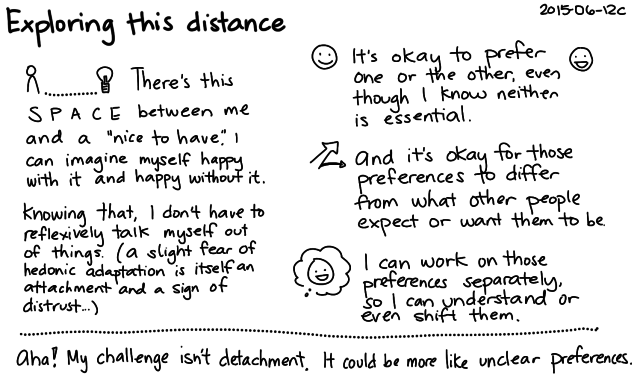 Exploring this distance
2015-06-12c
There's this
S P A C E between me
and a "nice to have". I
can imagine myself happy
with it and happy without it.
Knowing that, I don't have to
reflexively talk myself out
of things. (a slight fear of
hedonic adaptation is itself an
attachment and a sign of
distrust...)
It's okay to prefer
one or the other, even
though I know neither
is essential.
And it's okay for those
preferences to differ
from what other people
expect or want them to be.
I can work on those
preferences separately,
so I can understand or
even shift them.
Aha! My challenge isn't detachment. It could be more like unclear preferences.